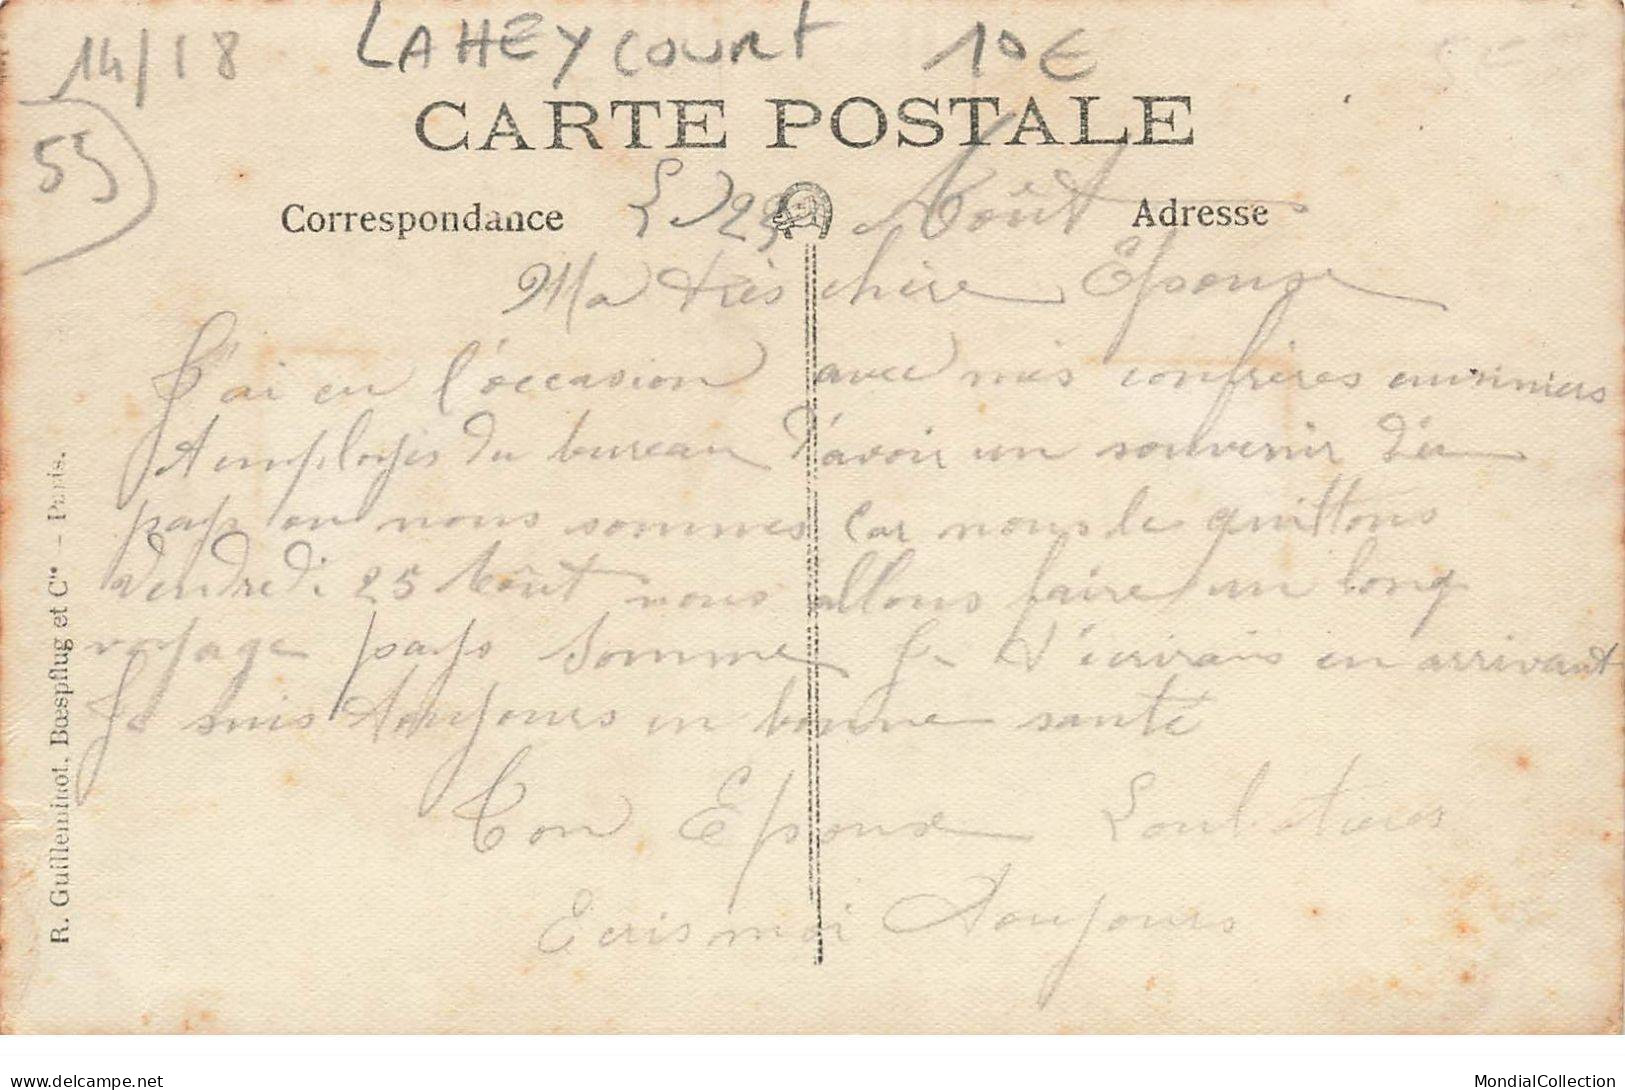 14/18 LAHEYCOURT 10€ 5€
55
CARTE POSTALE
Correspondance
Adresse
Le 23 Août
Ma très chère Épouse
J'ai eu l'occasion avec mes confrères cuisiniers
& employés du bureau d'avoir un souvenir du
pays ou nous sommes car nous le quittons
Vendredi 25 Août nous allons faire un long
voyage pays Somme Je t'écrirais en arrivant
Je suis toujours en bonne santé
Ton Epoux
Ecris moi toujours
R. Guilleminot, Bœspflug et Cie - Paris.
delcampe.net
MondialCollection